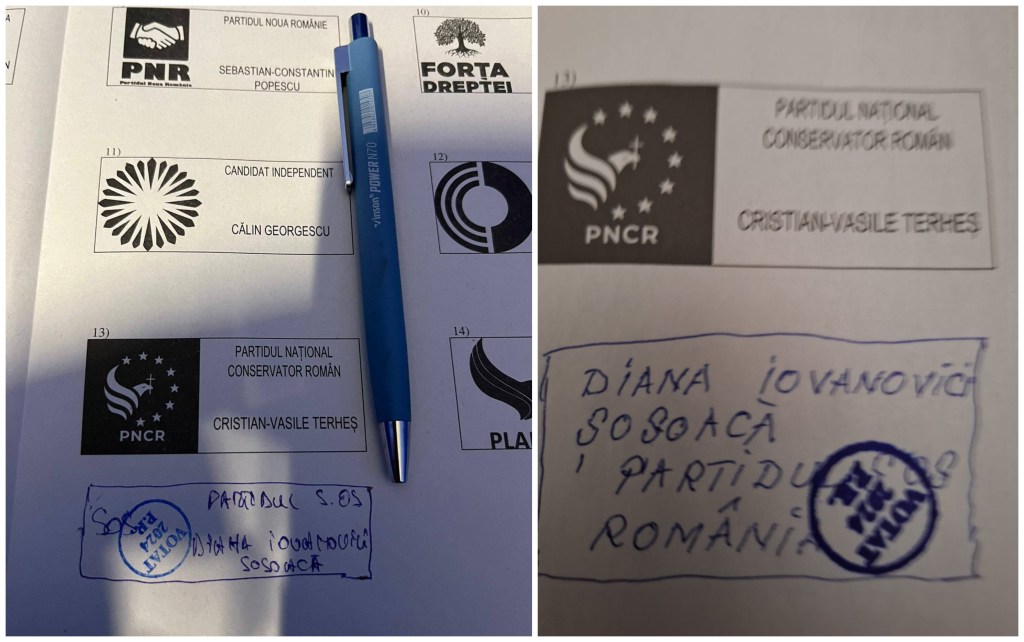 PARTIDUL NOUA ROMÂNIE
PNR
Partidul Noua România
SEBASTIAN-CONSTANTIN
POPESCU
10)
FORȚA
DREPTEI
11)
CANDIDAT INDEPENDENT
CĂLIN GEORGESCU
12)
Vinson POWER N70
13)
PARTIDUL NAȚIONAL
CONSERVATOR ROMÂN
CRISTIAN-VASILE TERHEȘ
PNCR
14)
PLA
PARTIDUL S.OS
DIANA IOVANOVICI
SOSOACĂ
VOTAT
2024
P.R.
13)
PARTIDUL NAȚIONAL
CONSERVATOR ROMÂN
CRISTIAN-VASILE TERHEȘ
PNCR
DIANA IOVANOVICI
ȘOȘOACĂ
PARTIDUL SOS
ROMÂNIA
VOTAT
2024
P.R.